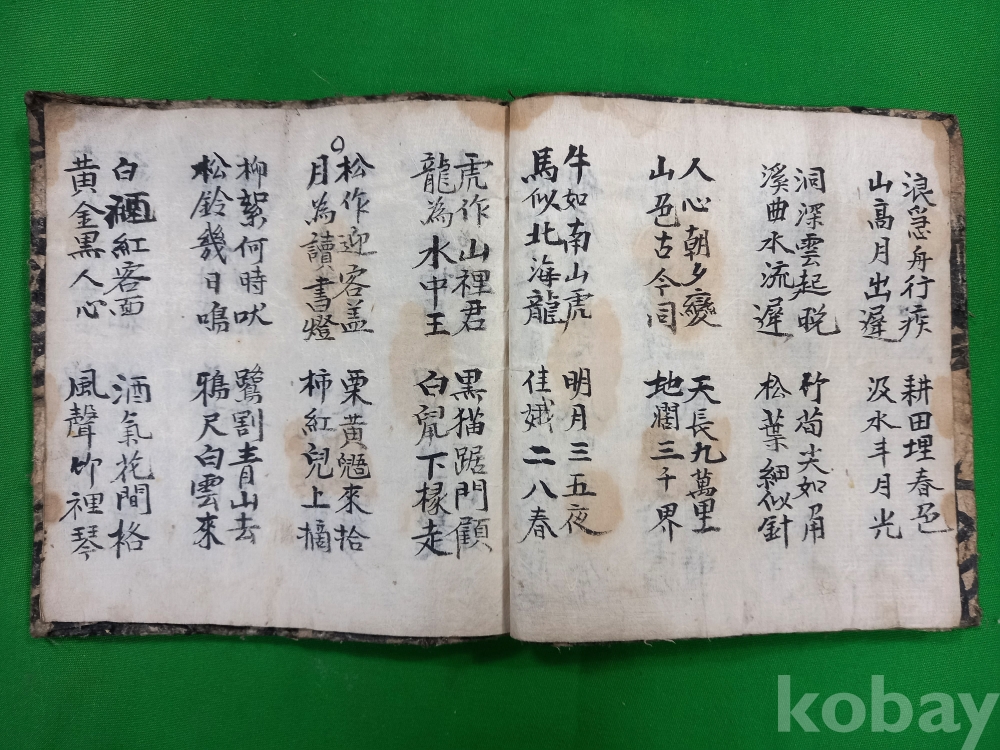 浪急舟行疾
山高月出遲
耕田埋春邑
汲水斗月光
洞深雲起晩
溪曲水流遲
竹筍尖如
松葉細似針
人心朝夕變
山邑古今同
天長九萬里
地濶三千界
牛如南山虎
馬似北海龍
明月三五夜
佳娥二八春
虎作山裡君
龍為水中王
黑猫踞門顧
白鼠下椽走
○
松作迎客盖
月為讀書燈
栗黄來拾
柿紅兒上摘
柳絮何時吠
松鈴幾日鳴
鷺割青山去
鴉尺白雲來
白紅客面
黄金黒人心
酒氣花間格
風聲竹裡琴
kobay